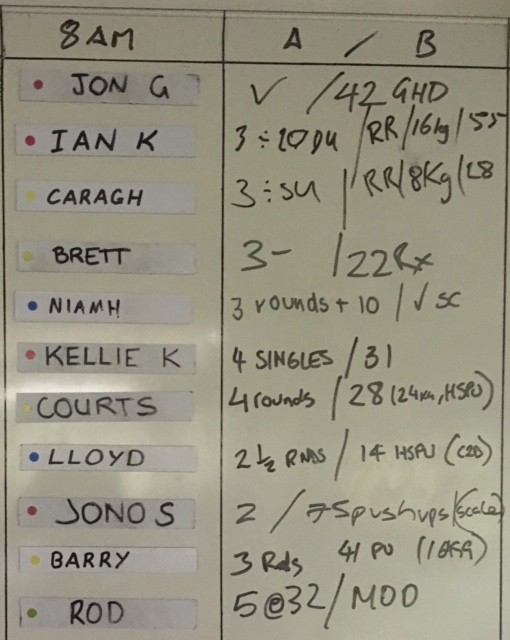 8AM A / B
JON G √ /42 GHD
IAN K 3÷20 DU /RR/16kg/55
CARAGH 3÷SU /RR/8Kg/28
BRETT 3- /22Rx
NIAMH 3 rounds + 10 / √ SC
KELLIE K 4 SINGLES /31
COURTS 4 rounds /28 (24kg, HSPU)
LLOYD 2½ RNDS / 14 HSPU (C2D)
JONO S 2 / 75 pushups (scale)
BARRY 3 Rds 41 PU
ROD 5@32 / MOD